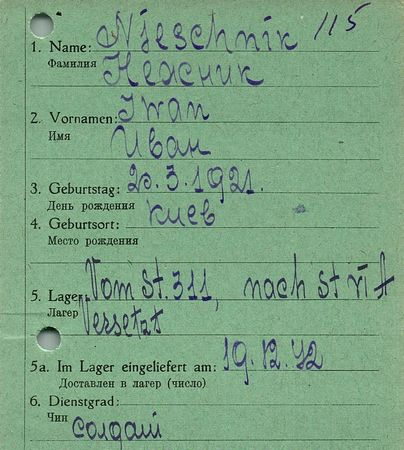 1. Name: Njeschnik 115
Фамилия
2. Vornamen: Iwan
Имя Иван
3. Geburtstag: 20.3.1921.
День рождения
4. Geburtsort: Киев
Место рождения
5. Lager: Vom St. 311, nach St VI A
Лагер Versetzt
5a. Im Lager eingeliefert am: 19.12.42
Доставлен в лагер (число)
6. Dienstgrad:
Чин солдат